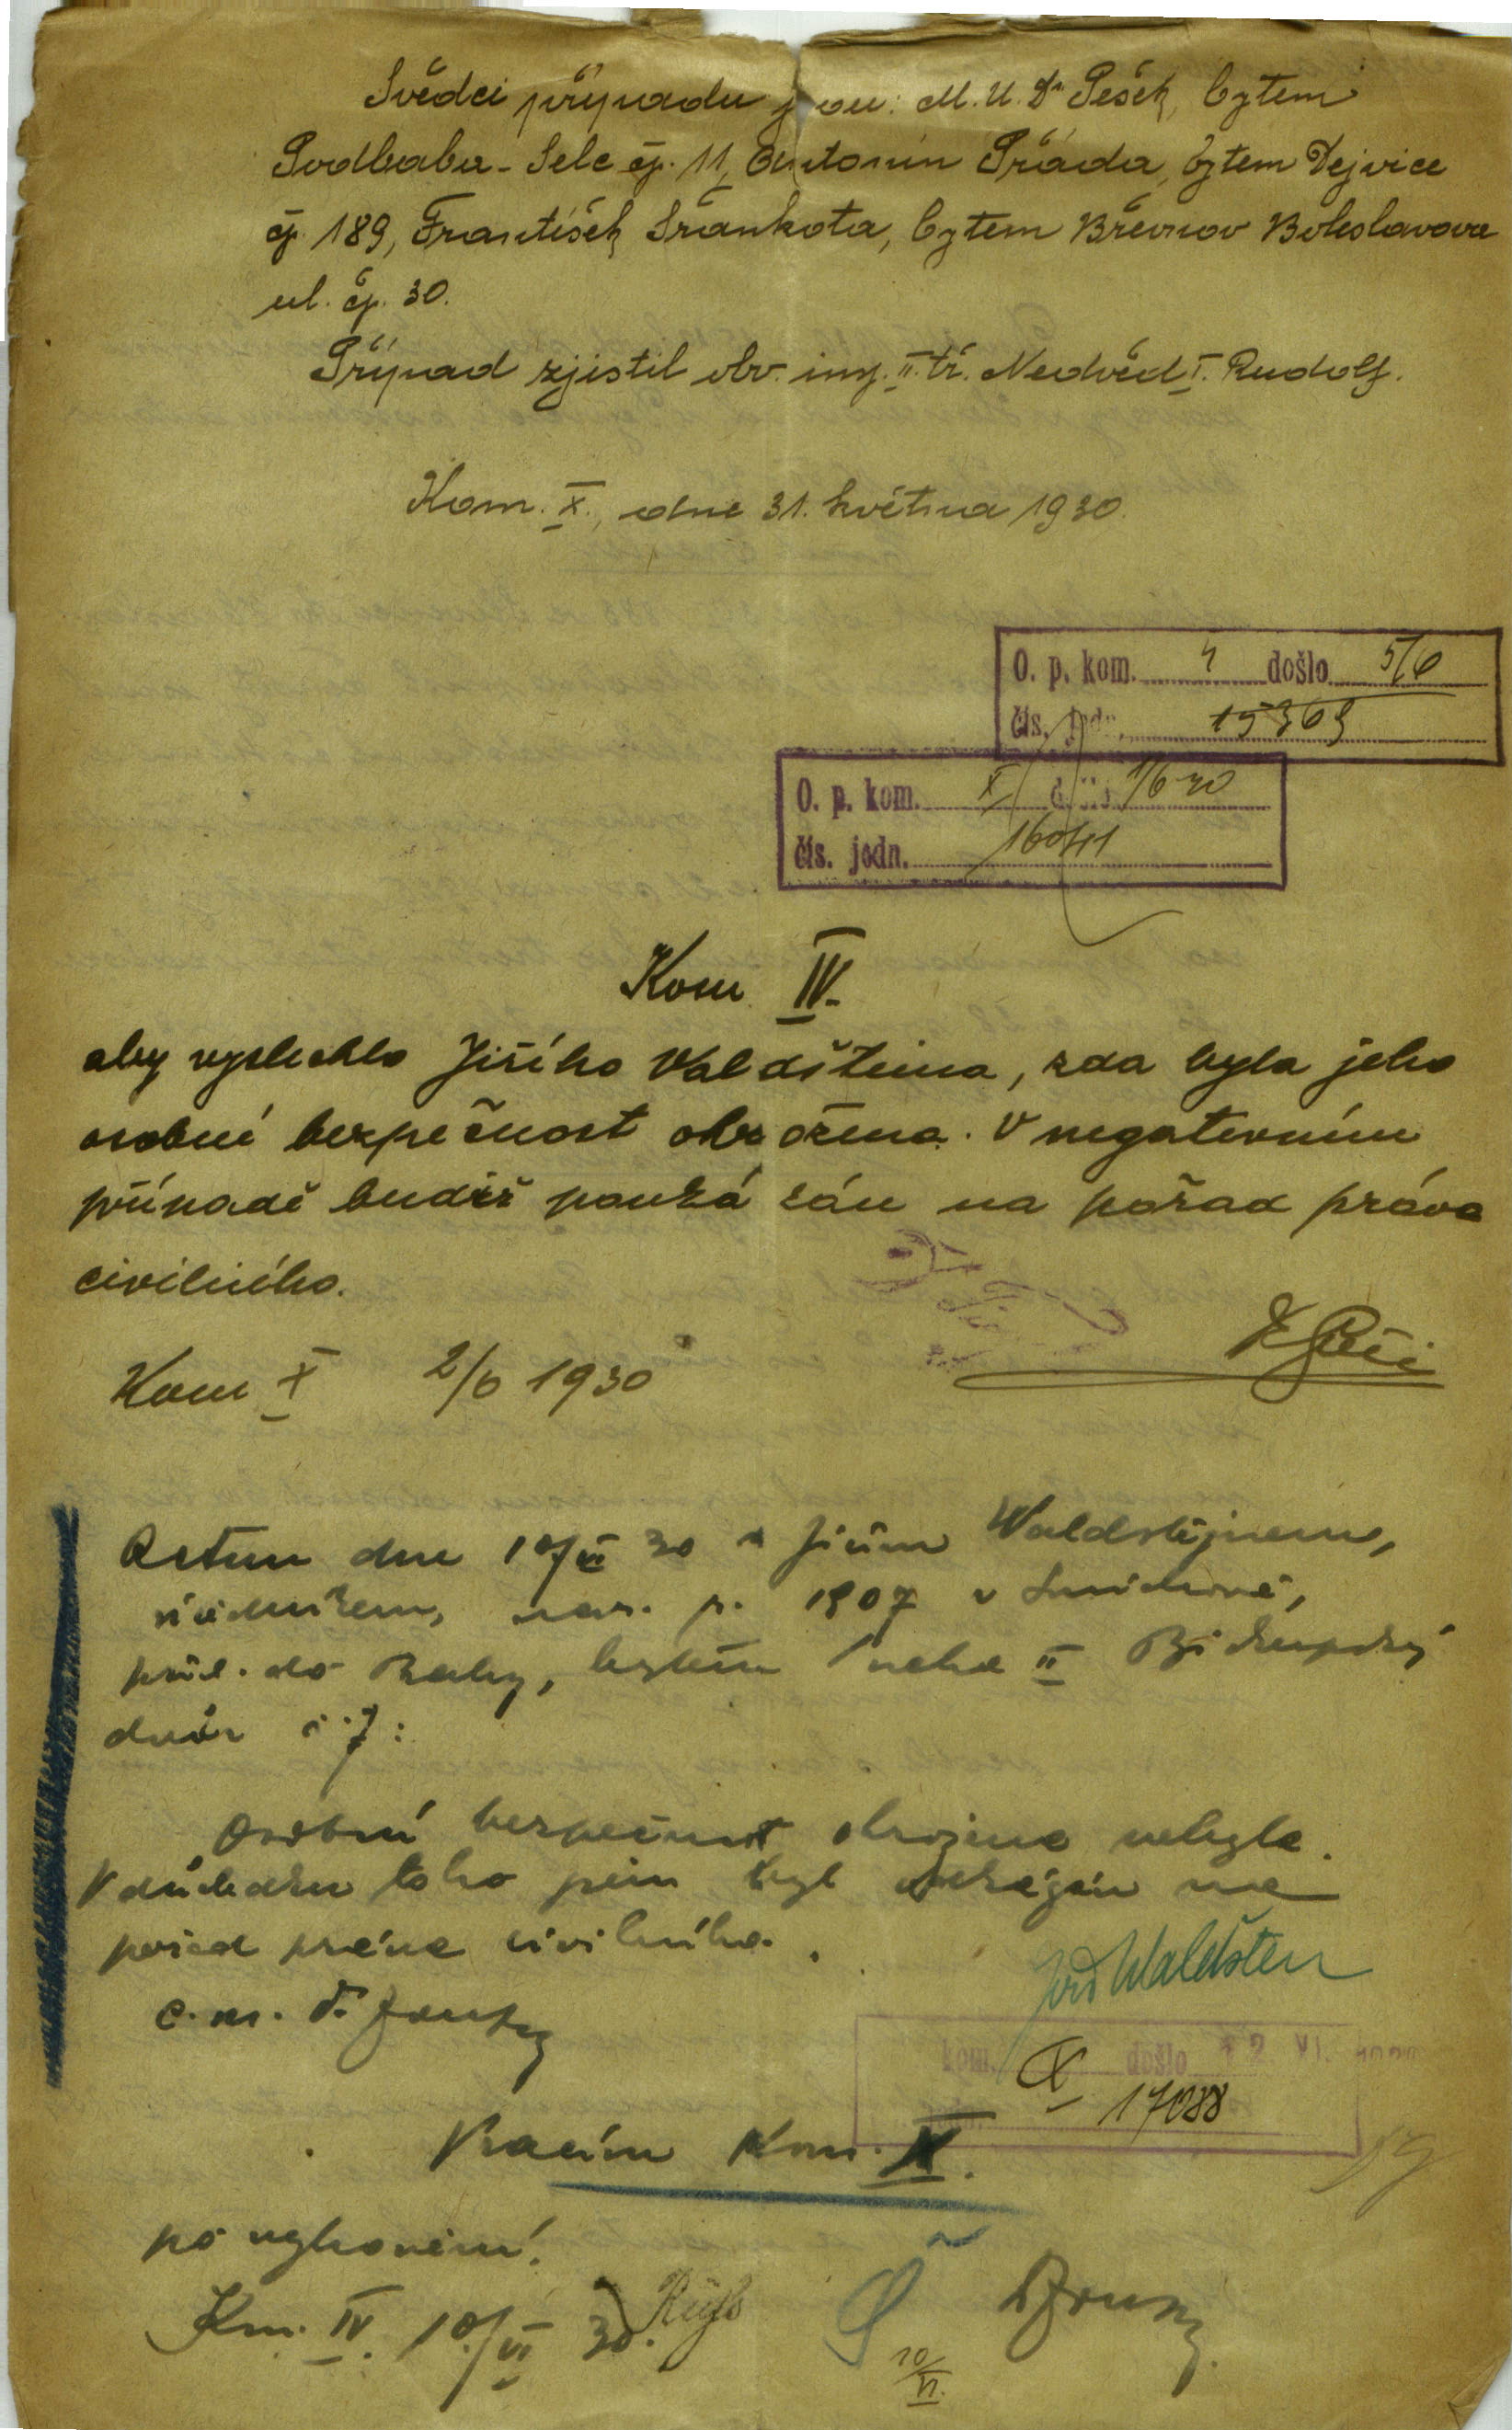 Svědci případu jsou: M.U.Dr Pešek, bytem
Podbaba-Selc čp. 11, Antonín Práda, bytem Dejvice
čp. 189, František Šrankota, bytem Břevnov Boleslavova
ul. čp. 30.
Případ zjistil obv. insp. II. tř. Nedvěd I. Rudolf.
Kom. X., dne 31. května 1930.
O. p. kom. 4 došlo 5/6
čís. jedn. 15369
O. p. kom. X došlo 1/6 30
čís. jedn. 16041
Kom IV.
aby vyslechlo Jiřího Valdšteina, zda byla jeho
osobní bezpečnost ohrožena. V negativním
případě budiž poukázán na pořad práva
civilního.
Kom X 2/6 1930
Actum dne 10/VI 30 s Jiřím Waldštejnem,
nar. r. 1907 v Smíchově,
přísl. do Prahy, bytem Praha II Biskupský
dvůr č 7:
Osobní bezpečnost ohrožena nebyla.
V důsledku toho jsem byl odkázán na
pořad práva civilního.
Jiří Waldstein
kom. X došlo 12 VI. 1930
17088
Vracím Kom. X.
po vyhovění.
Km. IV. 10/VI 30.
10/VI.